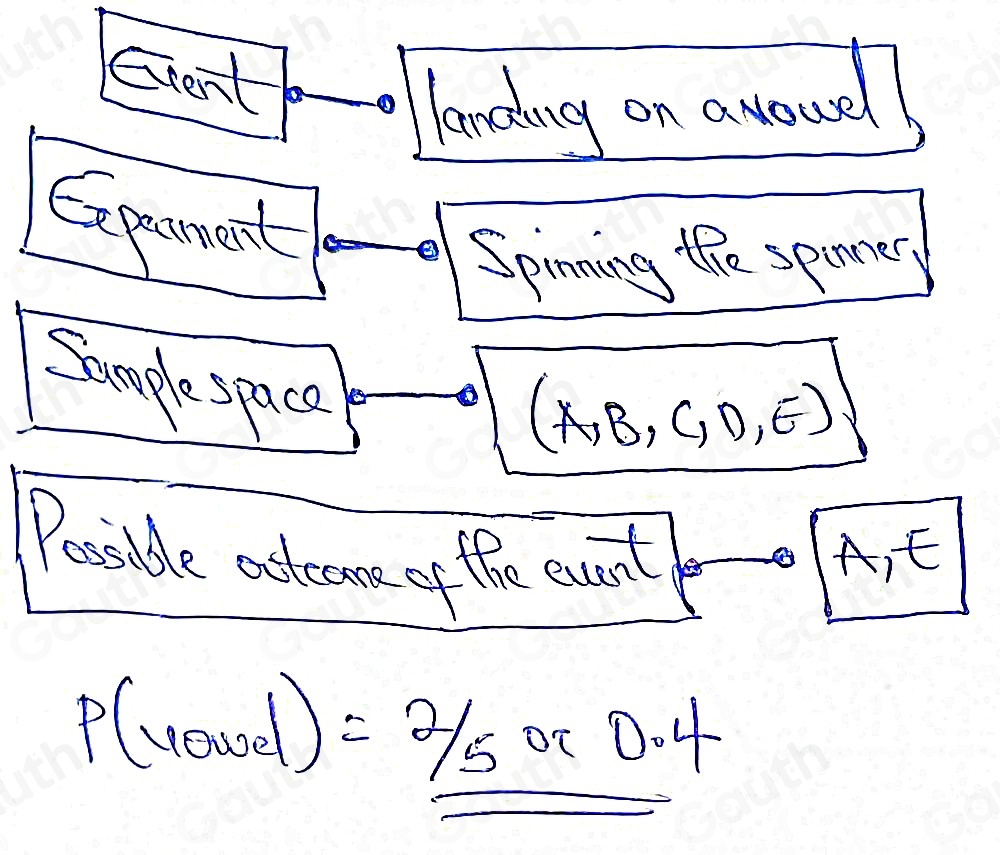 Event landing on a vowel
Experiment Spinning the spinner
Sample space (A, B, C, D, E)
Possible outcome of the event A, E
P(vowel) = 2/5 or 0.4